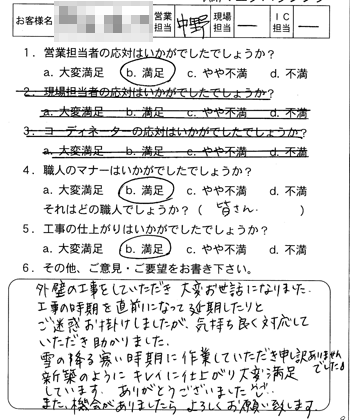 お客様名 営業担当 中野 現場担当 ― ＩＣ担当 ―
１．営業担当者の応対はいかがでしたでしょうか？
a. 大変満足 b. 満足 c. やや不満 d. 不満
２．現場担当者の応対はいかがでしたでしょうか？
a. 大変満足 b. 満足 c. やや不満 d. 不満
３．コーディネーターの応対はいかがでしたでしょうか？
a. 大変満足 b. 満足 c. やや不満 d. 不満
４．職人のマナーはいかがでしたでしょうか？
a. 大変満足 b. 満足 c. やや不満 d. 不満
それはどの職人でしょうか？（ 皆さん. ）
５．工事の仕上がりはいかがでしたでしょうか？
a. 大変満足 b. 満足 c. やや不満 d. 不満
６．その他、ご意見・ご要望をお書き下さい。
外壁の工事をしていただき 大変お世話になりました.
工事の時期を直前になって延期したりと
ご迷惑お掛けしましたが、気持ち良く対応して
いただき助かりました.
雪の降る寒い時期に作業していただき申訳ありませんでした!!
新築のように キレイに仕上がり大変満足
しています. ありがとうございました
また、機会がありましたら よろしくお願い致します